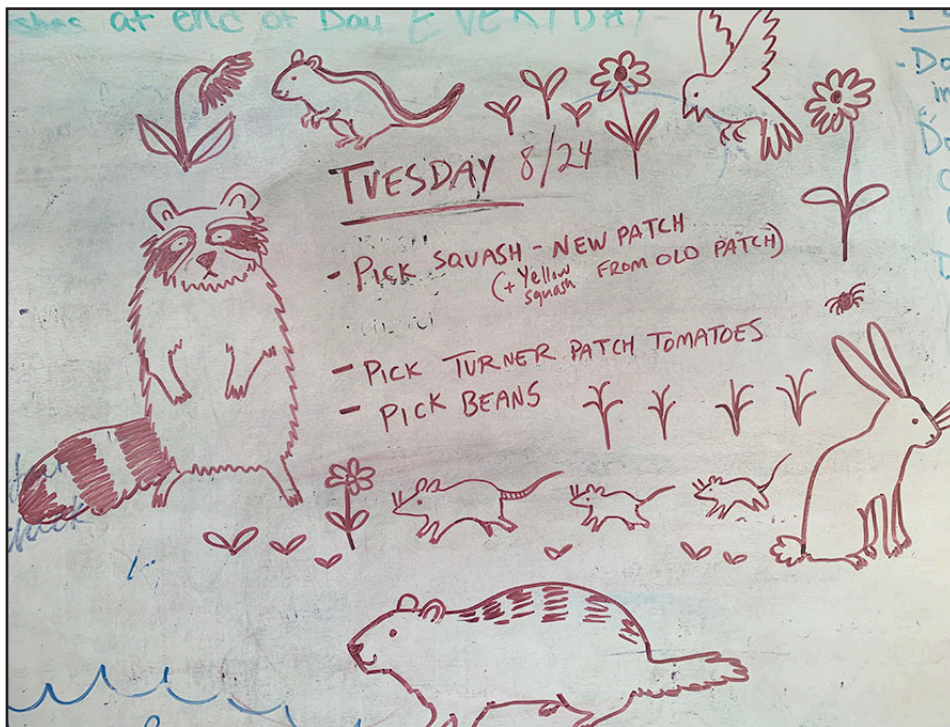 at end of Day EVERYDAY
TUESDAY 8/24
- PICK SQUASH - NEW PATCH
(+ Yellow squash FROM OLD PATCH)
- PICK TURNER PATCH TOMATOES
- PICK BEANS